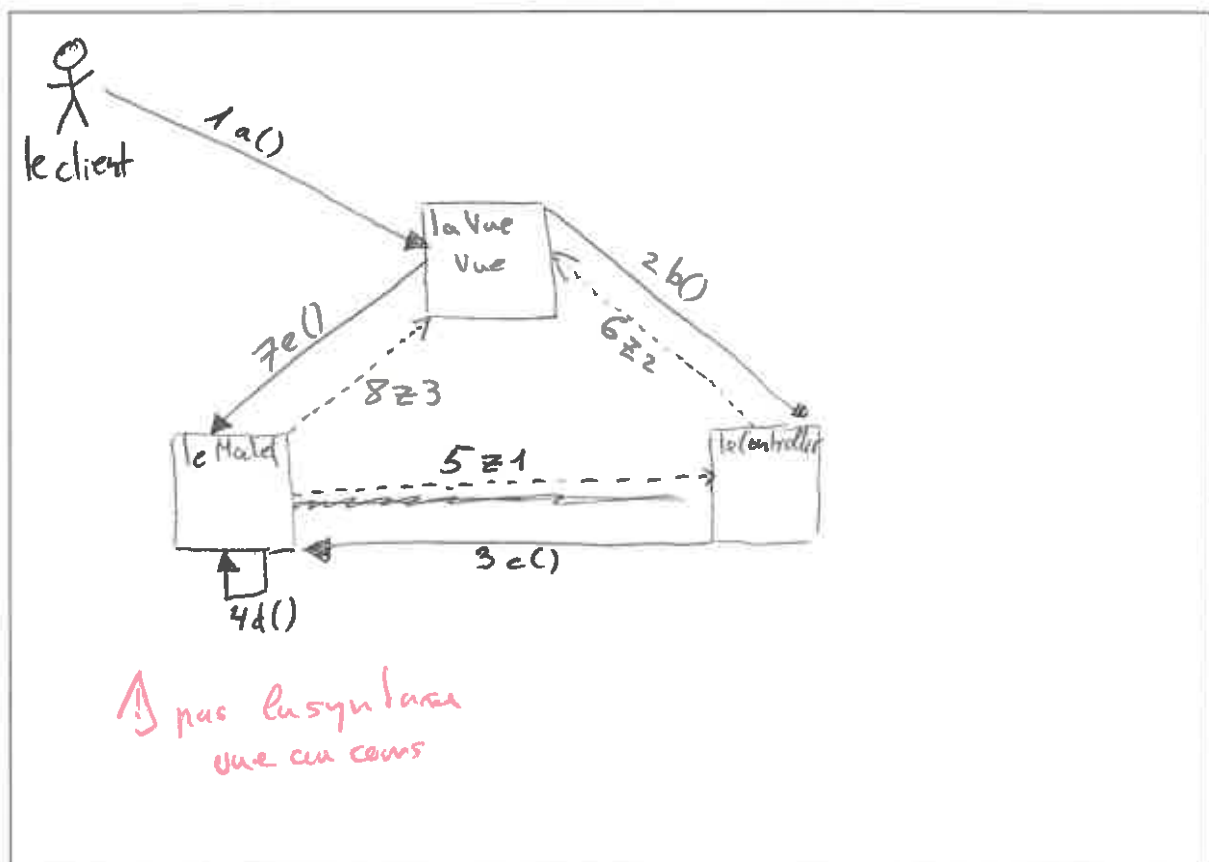 le client
1 a()
la Vue
Vue
2 b()
7 e()
6 z2
8 z3
le Model
le Controller
5 z1
3 c()
4 d()
⚠ pas la syntaxe
vue au cours